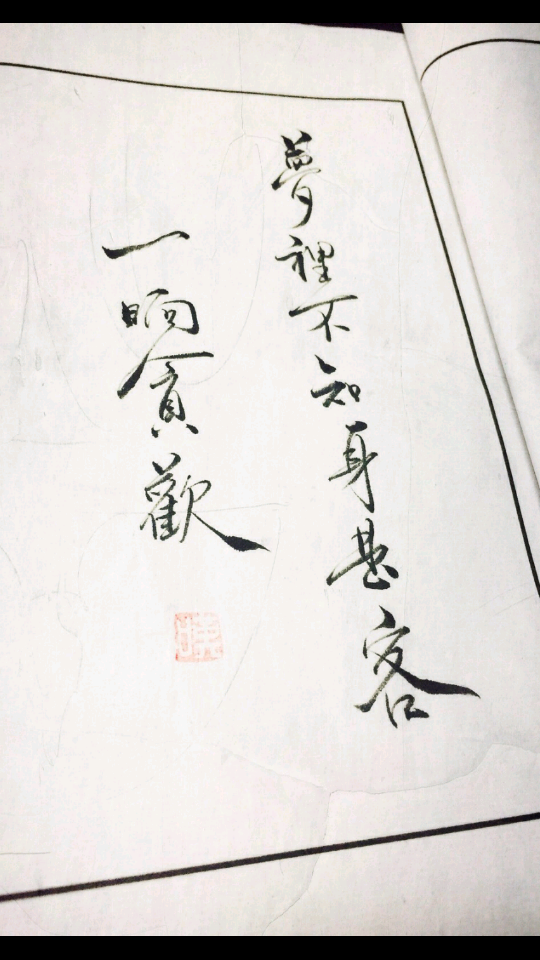 夢裡不知身甚客
一晌貪歡